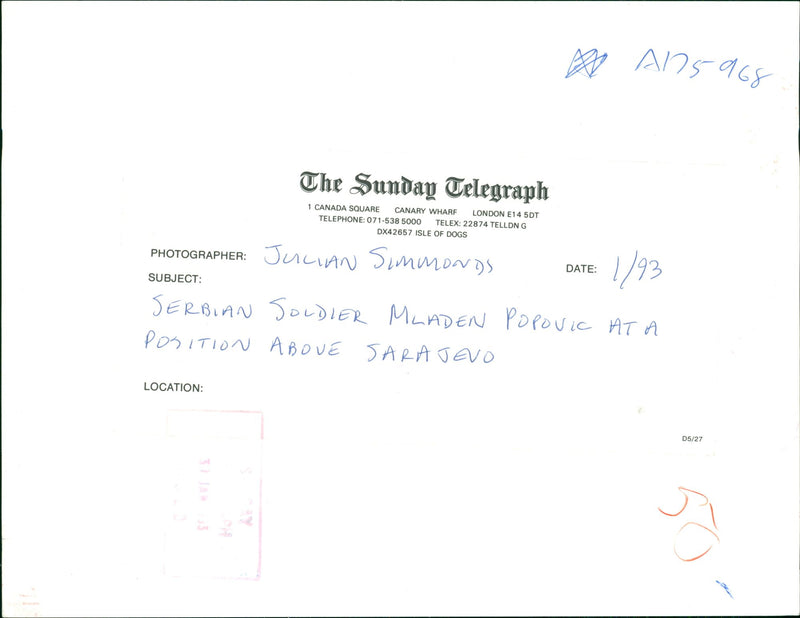 AD5-968
The Sunday Telegraph
1 CANADA SQUARE CANARY WHARF LONDON E14 5DT
TELEPHONE: 071-538 5000 TELEX: 22874 TELLDN G
DX42657 ISLE OF DOGS
PHOTOGRAPHER: JULIAN SIMMONDS DATE: 1/93
SUBJECT:
SERBIAN SOLDIER MLADEN POPOVIC AT A
POSITION ABOVE SARAJEVO
LOCATION:
D5/27